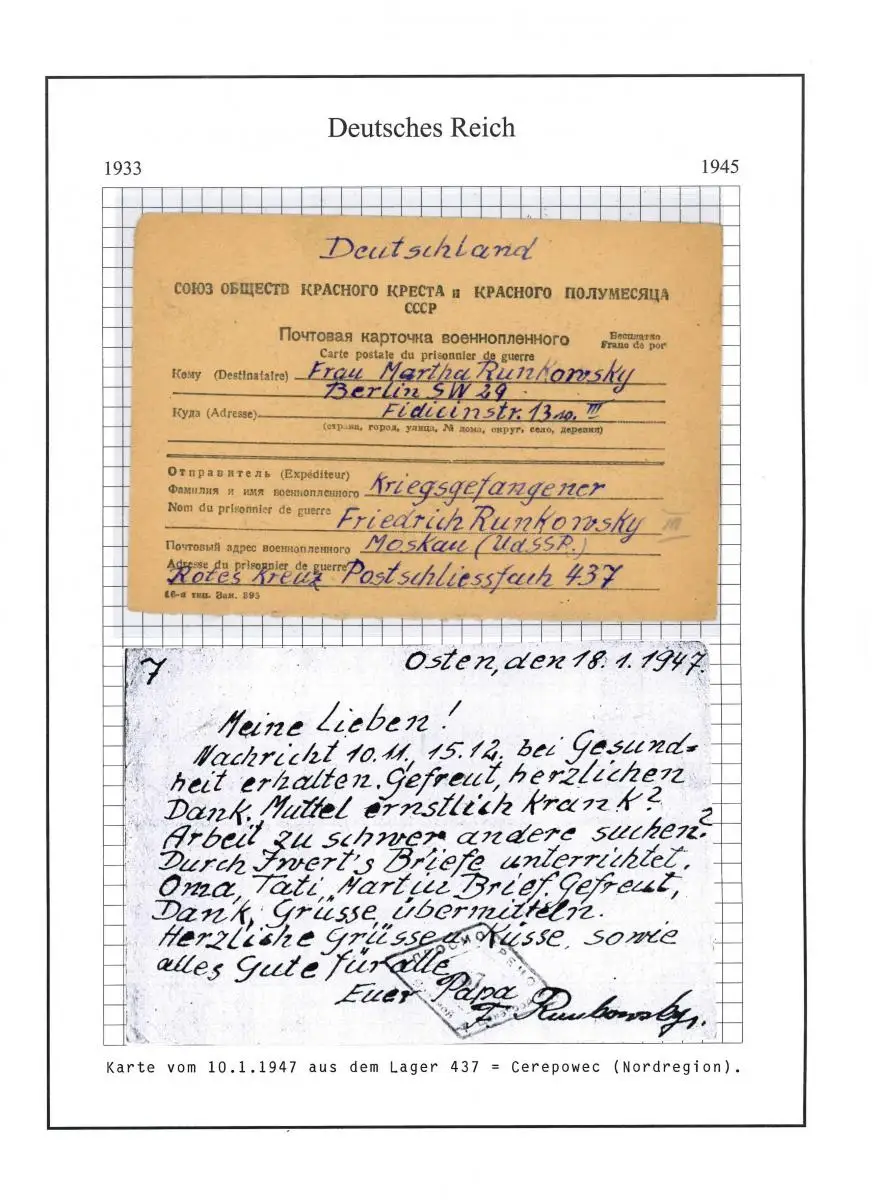 Deutsches Reich
1933
1945
Deutschland
СОЮЗ ОБЩЕСТВ КРАСНОГО КРЕСТА и КРАСНОГО ПОЛУМЕСЯЦА
СССР
Почтовая карточка военнопленного
Бесплатно
Carte postale du prisonnier de guerre
Franc de port
Кому (Destinataire) Frau Martha Runkowsky
Berlin SW 29
Куда (Adresse) Fidicinstr. 13 III
(страна, город, улица, № дома, округ, село, деревня)
Отправитель (Expéditeur)
Фамилия и имя военнопленного Kriegsgefangener
Nom du prisonnier de guerre Friedrich Runkowsky
Почтовый адрес военнопленного Moskau (UdSSR.)
Adresse du prisonnier de guerre
Rotes Kreuz Postschliessfach 437
16-я тип. Зак. 395
7
Osten, den 18.1.1947.
Meine Lieben!
Nachricht 10.11, 15.12. bei Gesund=
heit erhalten. Gefreut, herzlichen
Dank. Muttel ernstlich krank?
Arbeit zu schwer andere suchen?
Durch Briefe unterrichtet.
Oma, Tati, Martin Brief. Gefreut,
Dank, Grüsse übermitteln.
Herzliche Grüsse u. Küsse, sowie
alles Gute für alle
Euer Papa
F. Runkowsky.
Karte vom 10.1.1947 aus dem Lager 437 = Cerepowec (Nordregion).